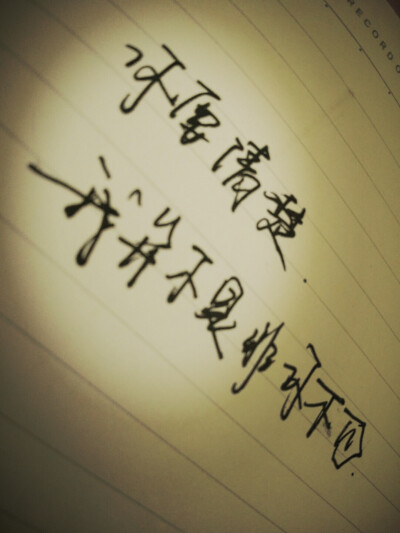 RECORD
你要清楚.
我并不是非你不可.